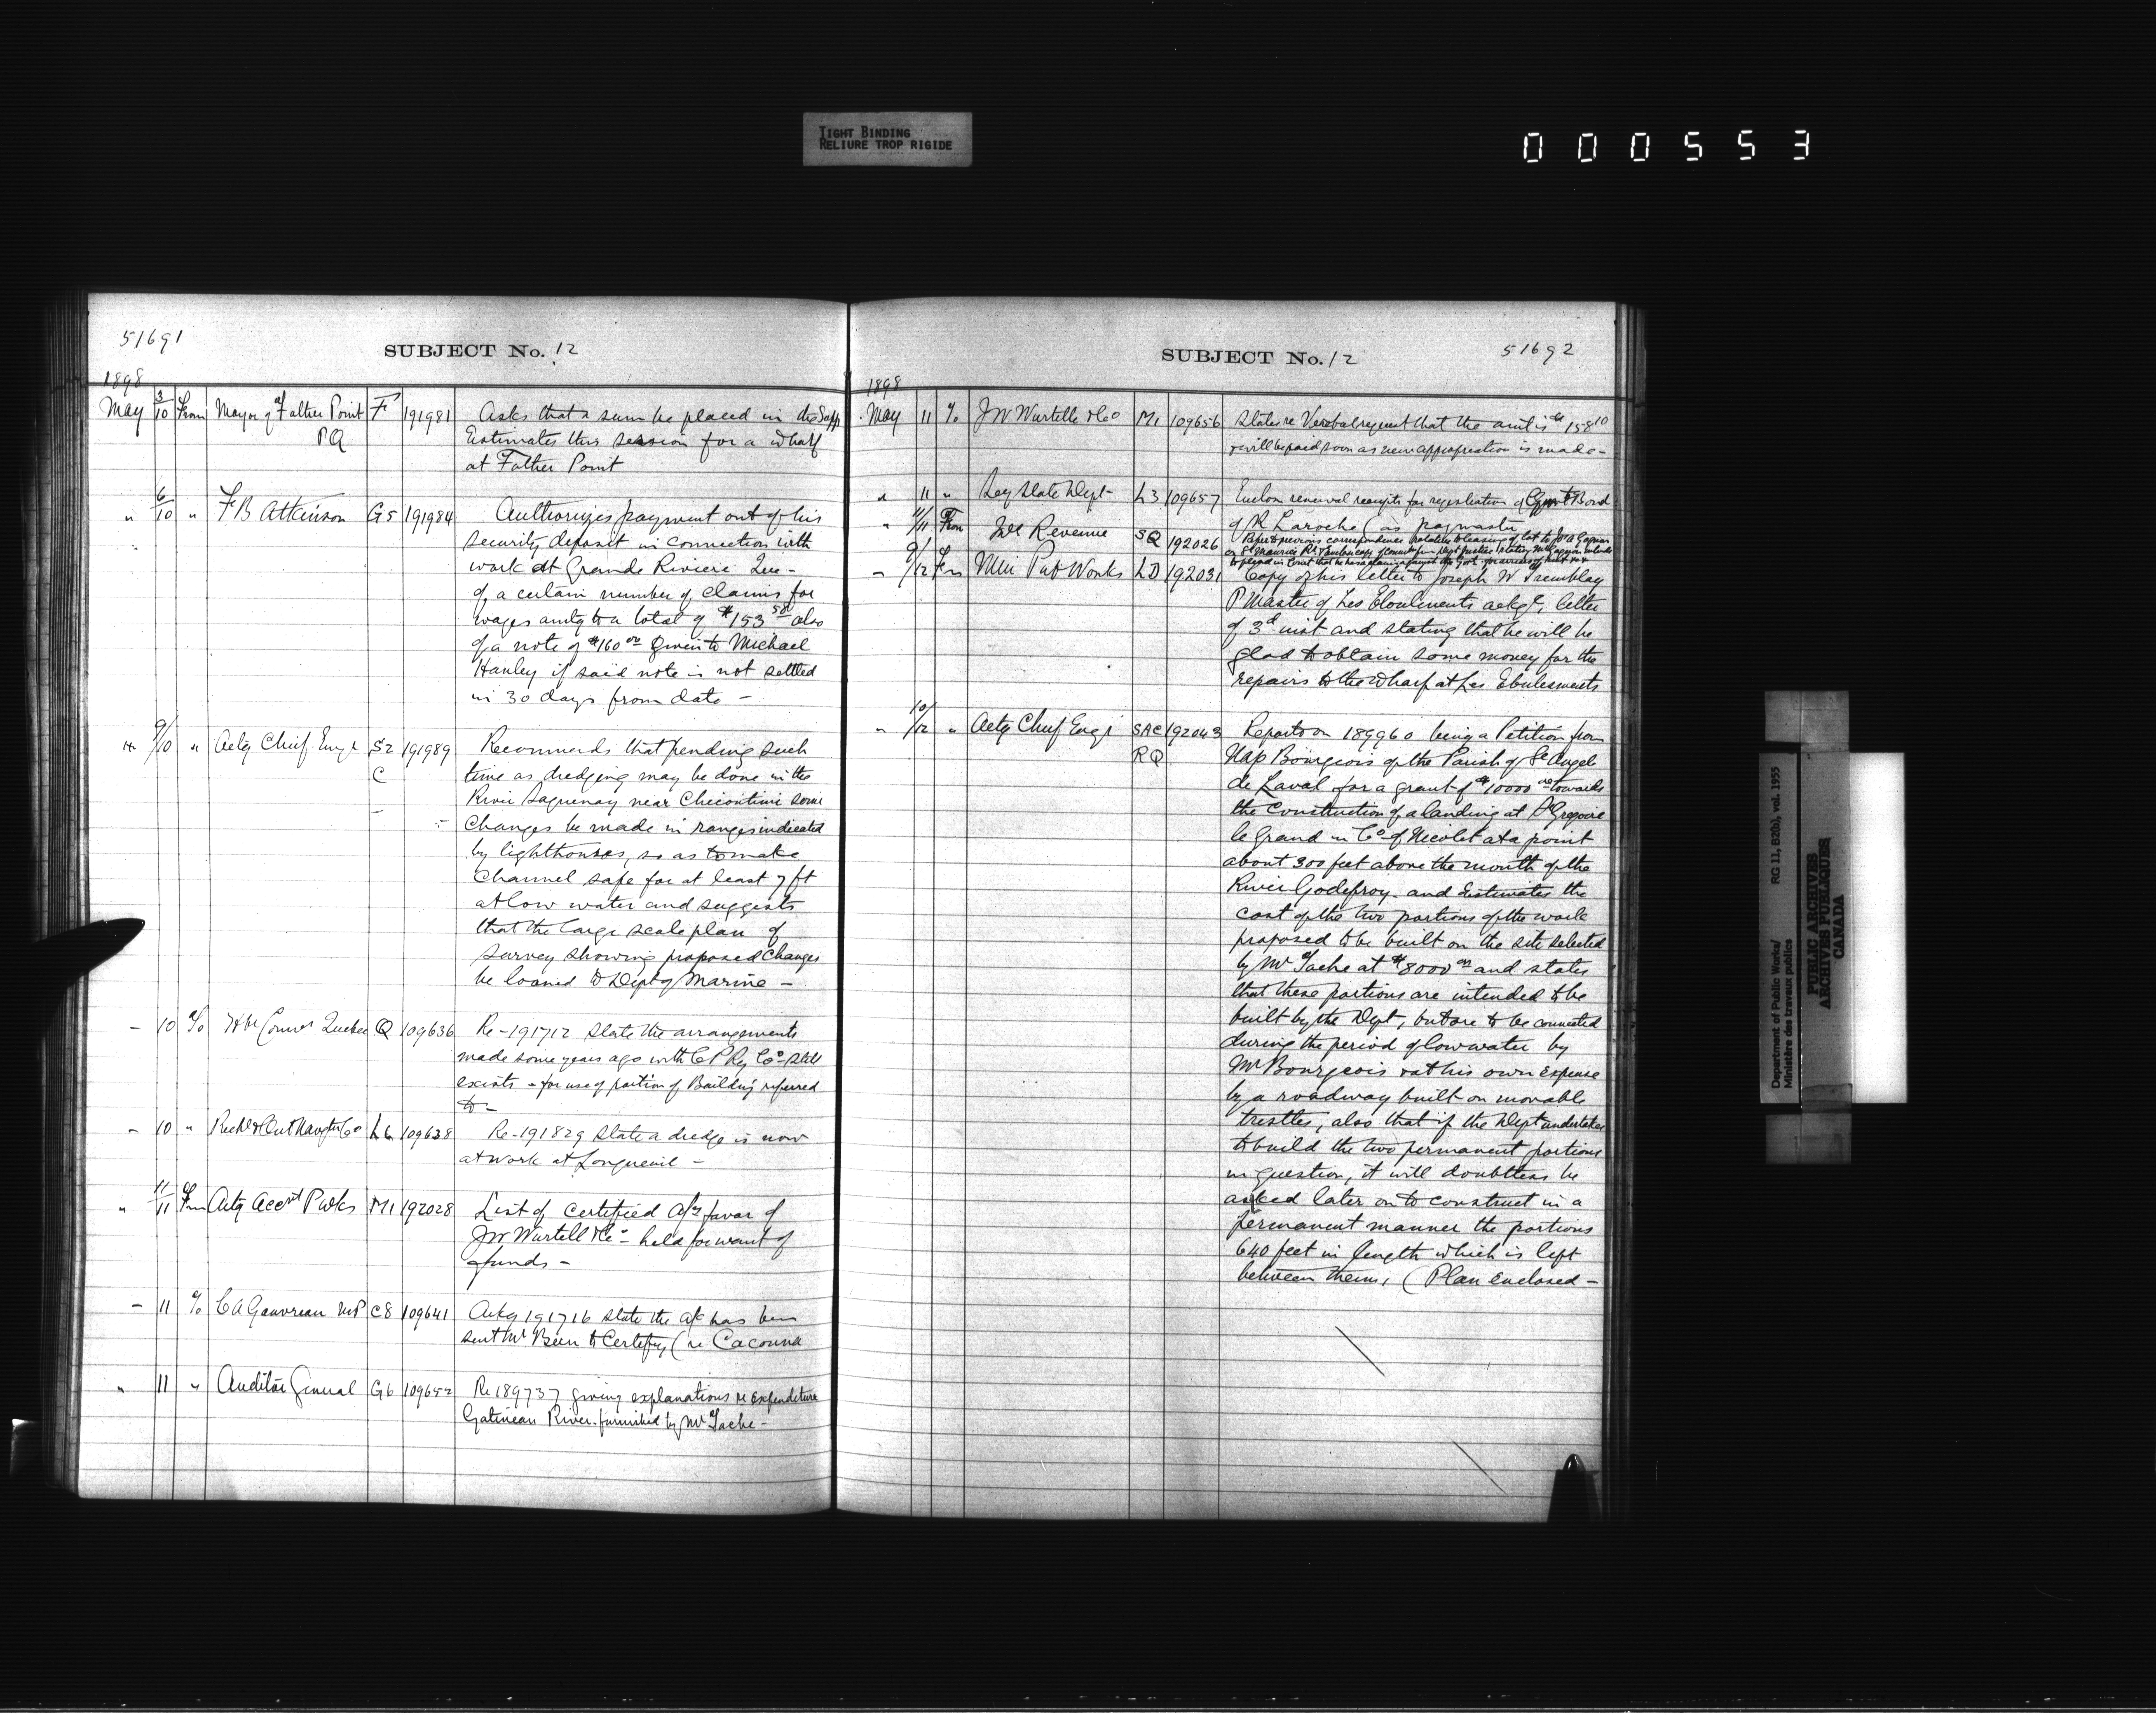 TIGHT BINDING
RELIURE TROP RIGIDE
000553
51691
SUBJECT No. 12
1898
May 3/10 From Mayor of Father Point F 191981 Asks that a sum be placed in the Supp
PQ Estimates this session for a wharf
at Father Point
" 6/10 " F B Atkinson G5 191984 Authorizes payment out of his
security deposit in connection with
work at Grande Riviere Que -
of a certain number of claims for
wages amtg to a total of $153 58 also
of a note of $160 00 given to Michael
Hanley if said note is not settled
in 30 days from date -
" 9/10 " Actg Chief Engr S2 191989 Recommends that pending such
C time as dredging may be done in the
River Saguenay near Chicoutimi some
changes be made in ranges indicated
by lighthouses, so as to make
channel safe for at least 7 ft
at low water and suggests
that the large scale plan of
survey showing proposed changes
be loaned to Dept of Marine -
- 10 To Quebec Q 109636 Re - 191712 state the arrangements
made some years ago with C P Ry Co still
exists - for use of portion of Building referred
to -
- 10 " L6 109638 Re - 191829 state a dredge is now
at work at Longueuil -
" 11/11 From Actg Acct P Wks M1 192028 List of certified a/cs favor of
J W Wurtell & Co - held for want of
funds -
- 11 To C A Gauvreau MP C8 109641 Ackg 191716 state the a/c has been
sent Mr to Certify (re Cacouna
" 11 " Auditor General G6 109652 Re 189737 giving explanations re Expenditure
Gatineau River furnished by Mr Tache -
SUBJECT No. 12
51692
1898
May 11 To J W Wurtelle & Co M1 109656 States re Verbal request that the amt is 158 10
& will be paid soon as new appropriation is made -
" 11 " Secy State Dept L3 109657 Enclose renewal receipts for registration of Bond
of R Laroche (as paymaster
" 11/11 From Inl Revenue SQ 192026 Refers to previous correspondence relative to leasing of lot to
on St Maurice
" 9/12 From Min Pub Works LD 192031 Copy of his letter to Joseph W Tremblay
P Master of Les Eboulements ackg letter
of 3d inst and stating that he will be
glad to obtain some money for the
repairs to the wharf at Les Eboulements
" 10/12 " Actg Chief Engr SAC 192043 Reports on 189960 being a Petition from
RQ Nap Bourgeois of the Parish of St Angele
de Laval for a grant of $10000 00 towards
the construction of a landing at St Gregoire
le Grand in Co of Nicolet at a point
about 300 feet above the mouth of the
River Godefroy - and Estimates the
cost of the two portions of the work
proposed to be built on the site selected
by Mr Tache at $8000 00 and states
that these portions are intended to be
built by the Dept, but are to be connected
during the period of low water by
Mr Bourgeois & at his own expense
by a roadway built on movable
trestles, also that if the Dept undertakes
to build the two permanent portions
in question, it will doubtless be
asked later on to construct in a
permanent manner the portions
640 feet in length which is left
between them, (Plan enclosed -
Department of Public Works/ RG 11, B2(b), vol. 1955
Ministère des travaux publics
PUBLIC ARCHIVES
ARCHIVES PUBLIQUES
CANADA